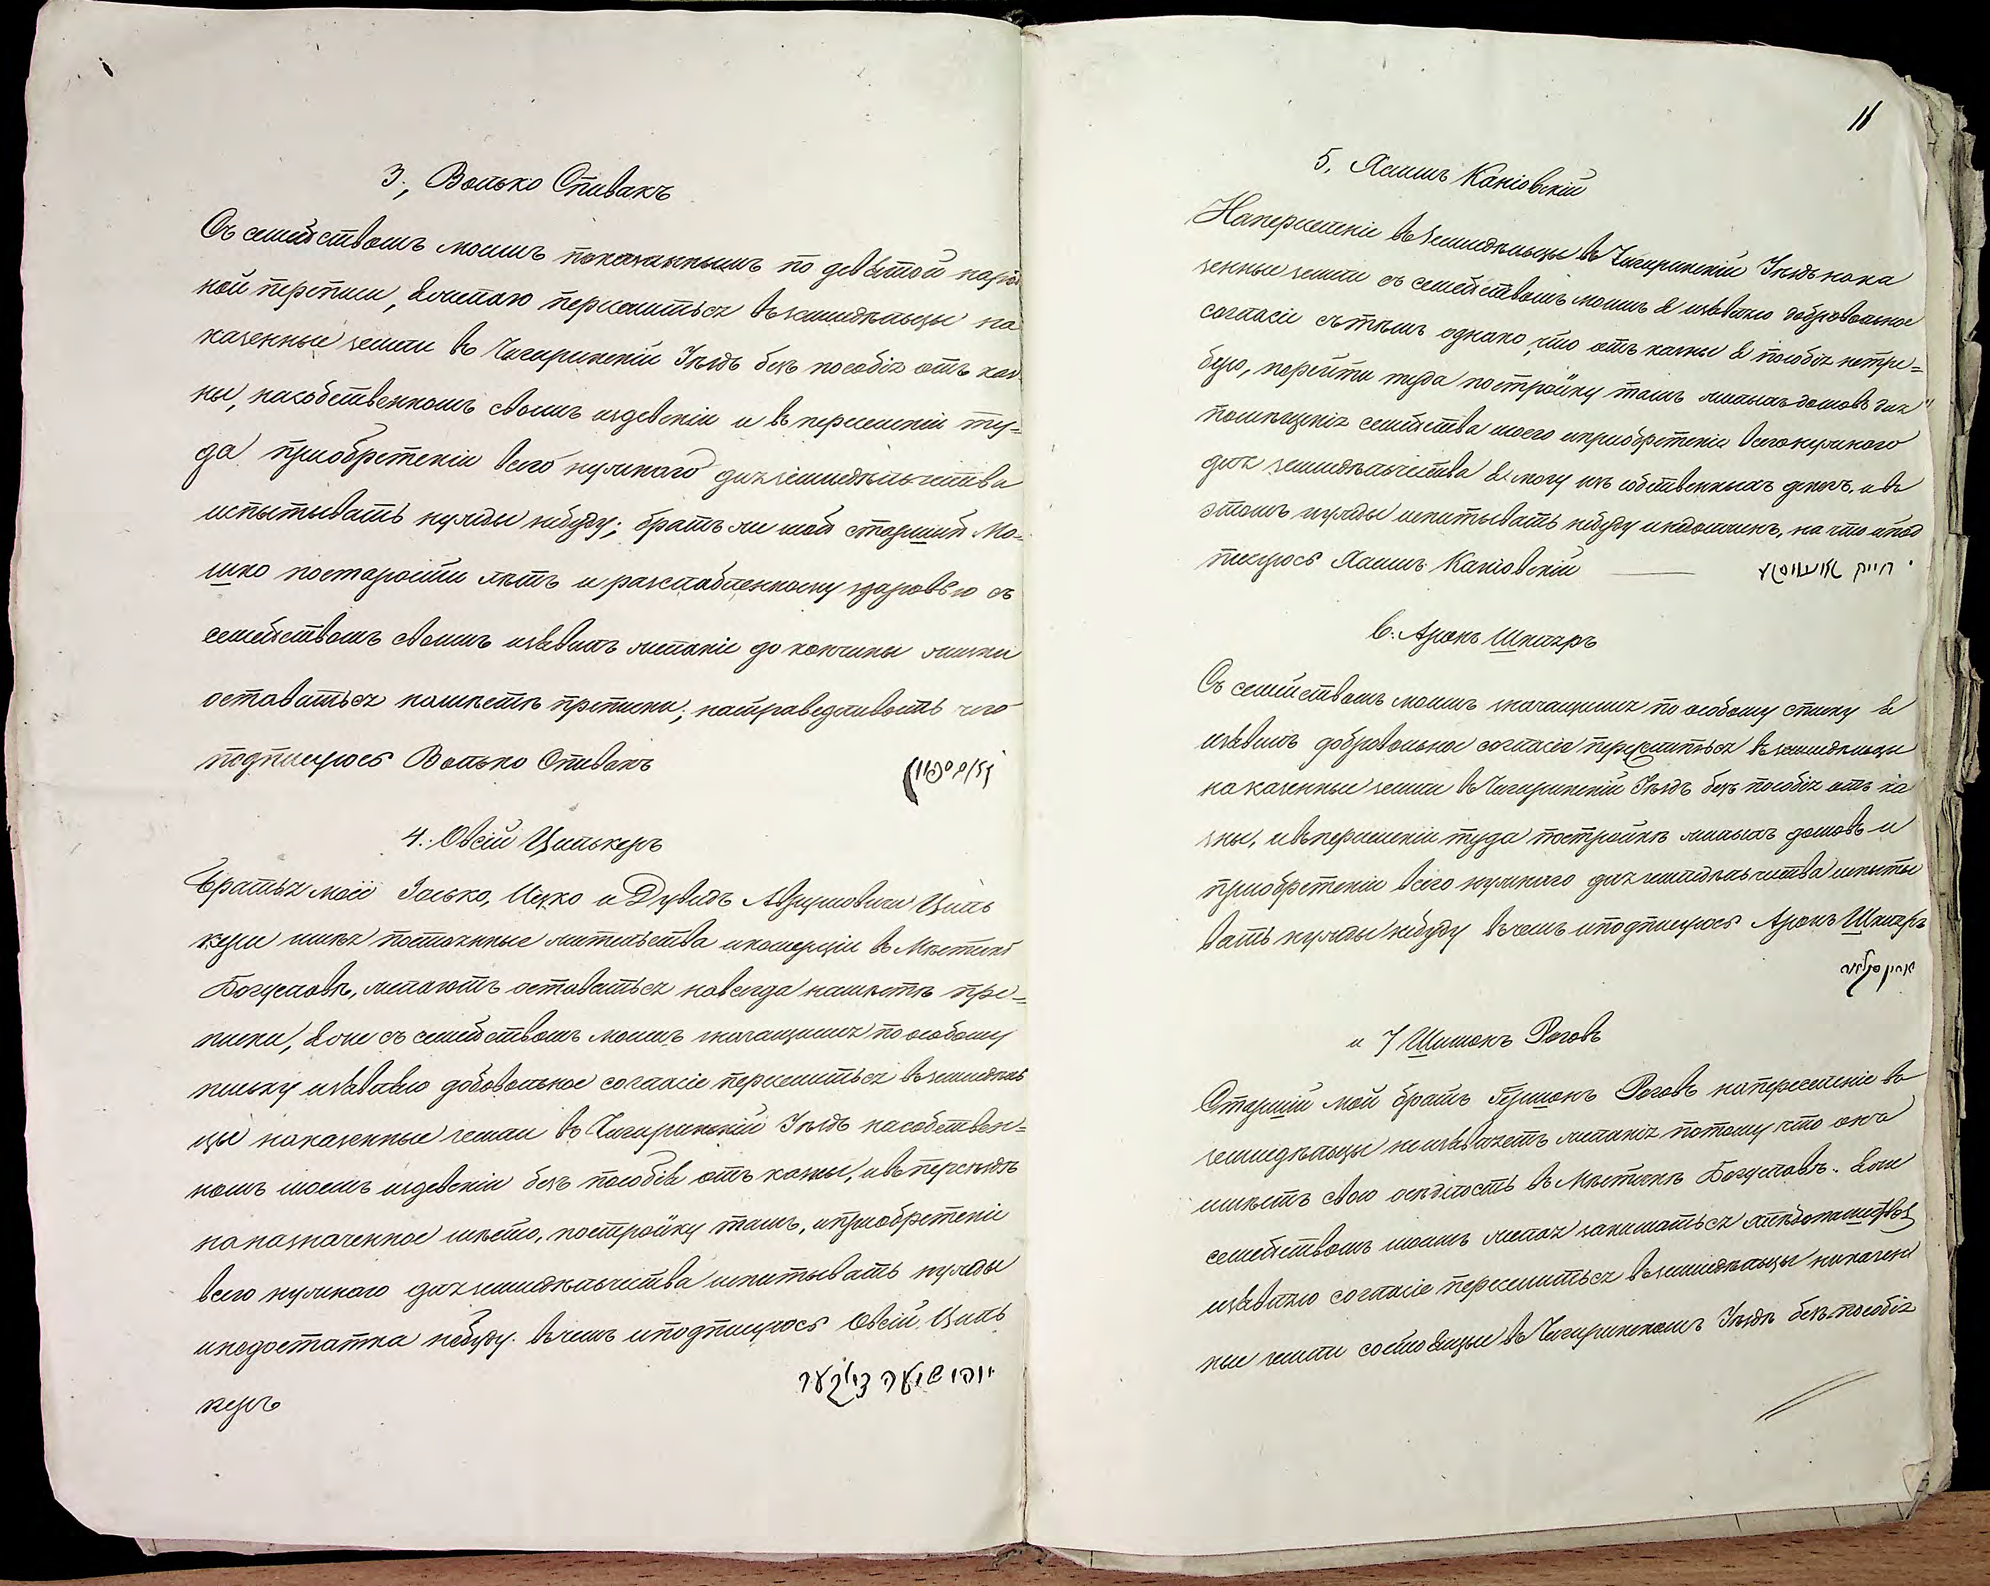 3., Волько Спивакъ
Съ семействомъ моимъ показаннымъ по девятой народ
ной переписи, я желаю переселиться въ земледѣльцы на
казенные земли въ Чигиринскій Уѣздъ безъ пособія отъ каз
ны, на собственномъ своимъ иждевеніи и въ переселеніи ту=
да приобрѣтеніи всего нужнаго для земледѣльчества
испытывать нужды небуду; братъ ли мой старшій Мо=
шко по старости лѣтъ и разслабленному здоровью съ
семействомъ своимъ изъявилъ желаніе до кончины жизни
оставаться на мѣстѣ преписки; на справедливость чего
подпишуюсь Волько Спивакъ
4.. Овсій Цилькеръ
Братья моіи Іосько, Ицко и Дувидъ Абрумовичи Циль
кери имѣя постоянные жительства и комерціи въ Мѣстечкѣ
Богуславѣ, желаютъ оставаться навсегда на мѣстѣ пре=
писки, я же съ семействомъ моимъ значащимся по особому
списку изъявляю добовольное согласіе переселиться въ земледѣль
цы на казенные земли въ Чигиринскій Уѣздъ на собствен=
номъ моемъ иждевеніи безъ пособія отъ казны, и въ переѣздѣ
на назначенное мѣсто, постройку тамъ, и приобрѣтеніе
всего нужнаго для земледѣльчества испитывать нужды
и недостатка небуду. въ чемъ и подпишуюсь Овсій Циль
керъ
יהושיע צילקער
11
5. Хаимъ Каніовскій
На переселеніе въ земледѣльцы въ Чигиринскій Уѣздъ на ка
зенные земли съ семействомъ моимъ я изъявляю добровольное
согласіе съ тѣмъ однако, что отъ казны я пособія нетре=
бую, перейти туда постройку тамъ жилыхъ домовъ для
помѣщенія семейства моего и приобрѣтеніи всего нужного
для земледѣльчества я могу изъ собственныхъ денегъ. и въ
этомъ нужды испитывать небуду и недостатка, на что и под
пишуюсь Хаимъ Каніовскій
חיים
6. Аронъ Шкляръ
Съ семействомъ моимъ значащимся по особому списку я
изъявилъ добровольное согласіе переселиться въ земледѣльцы
на казенные земли въ Чигиринскій Уѣздъ безъ пособія отъ ка
зны, и въ переселеніи туда постройкѣ жилыхъ домовъ и
приобрѣтеніи всего нужнаго для земледѣльчества испыты
вать нужды небуду въ чемъ и подпишуюсь Аронъ Шкляръ
ארין
и 7 Шимонъ Роговъ
Старшій мой братъ Гершонъ Роговъ на переселеніе въ
земледѣльцы не изъявляетъ желанія потому что онъ
имѣетъ свою осѣдлость въ Мѣстечкѣ Богуславѣ. я же
семействомъ моимъ желая заниматься хлѣбопашествомъ
изъявляю согласіе переселиться въ земледѣльцы на казен
ные земли состоящіе въ Чигиринскомъ Уѣздѣ безъ пособія